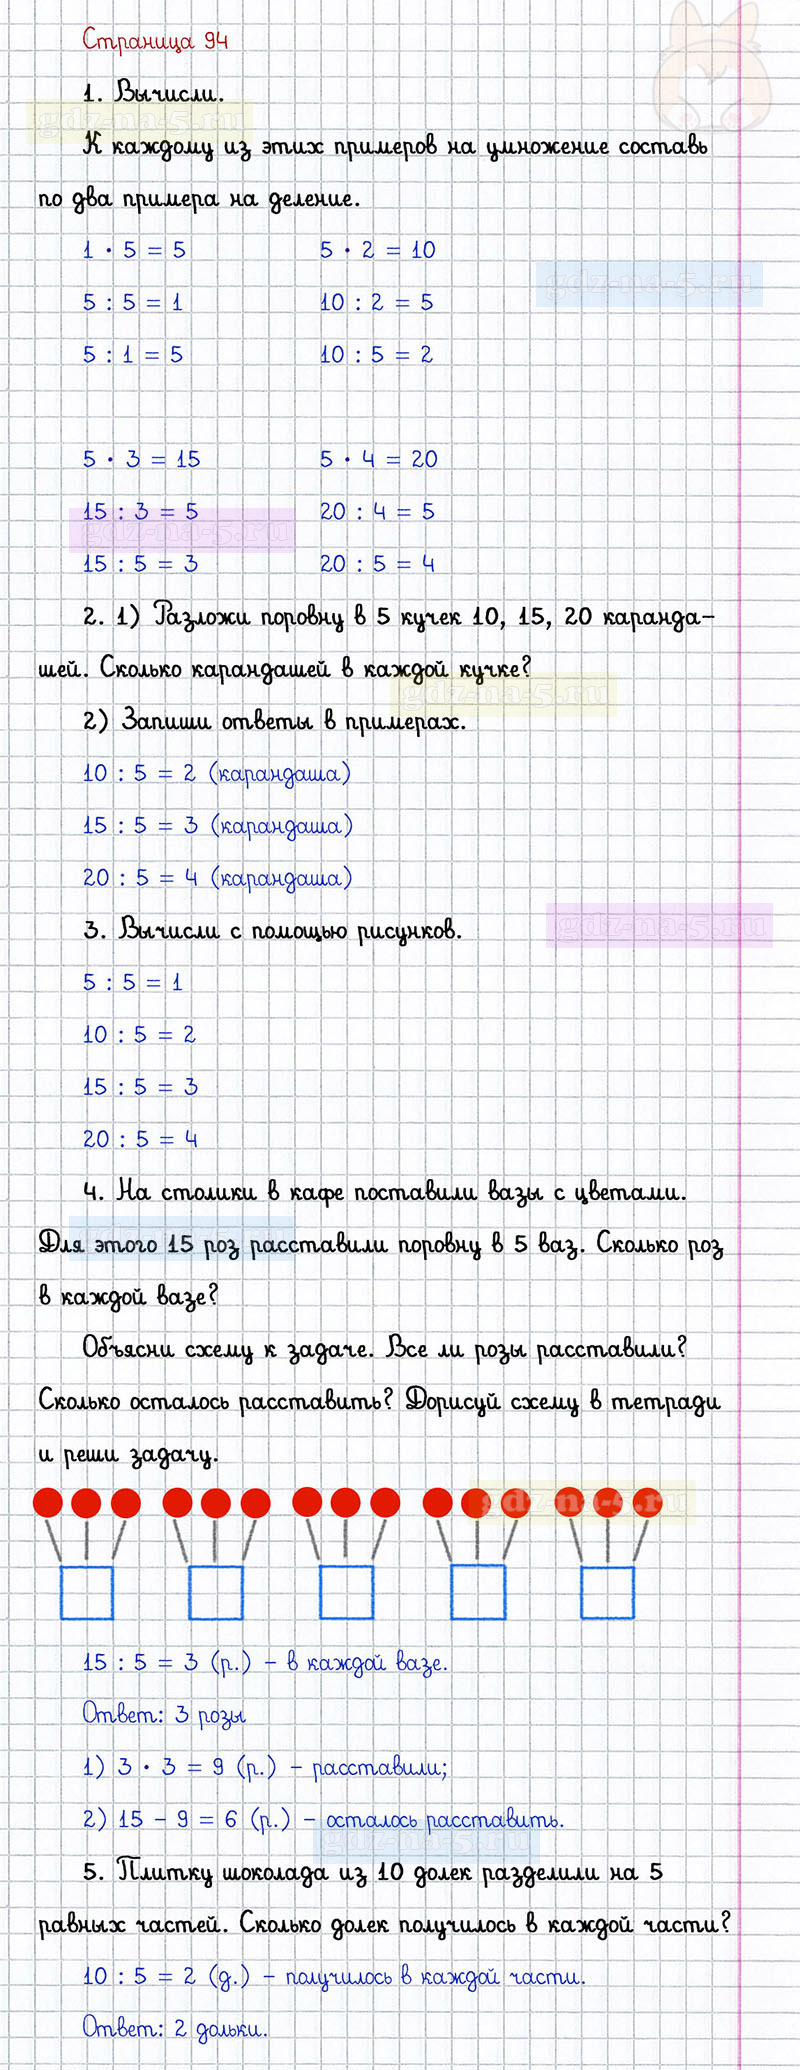 Страница 94
1. Вычисли.
gdz-na-5.ru
К каждому из этих примеров на умножение составь
по два примера на деление.
1 · 5 = 5 5 · 2 = 10
gdz-na-5.ru
5 : 5 = 1 10 : 2 = 5
5 : 1 = 5 10 : 5 = 2
5 · 3 = 15 5 · 4 = 20
15 : 3 = 5 20 : 4 = 5
gdz-na-5.ru
15 : 5 = 3 20 : 5 = 4
2. 1) Разложи поровну в 5 кучек 10, 15, 20 каранда-
шей. Сколько карандашей в каждой кучке?
gdz-na-5.ru
2) Запиши ответы в примерах.
10 : 5 = 2 (карандаша)
15 : 5 = 3 (карандаша)
20 : 5 = 4 (карандаша)
3. Вычисли с помощью рисунков.
gdz-na-5.ru
5 : 5 = 1
10 : 5 = 2
15 : 5 = 3
20 : 5 = 4
4. На столики в кафе поставили вазы с цветами.
gdz-na-5.ru
Для этого 15 роз расставили поровну в 5 ваз. Сколько роз
в каждой вазе?
Объясни схему к задаче. Все ли розы расставили?
Сколько осталось расставить? Дорисуй схему в тетради
и реши задачу.
gdz-na-5.ru
15 : 5 = 3 (р.) – в каждой вазе.
Ответ: 3 розы
1) 3 · 3 = 9 (р.) – расставили;
2) 15 – 9 = 6 (р.) – осталось расставить.
gdz-na-5.ru
5. Плитку шоколада из 10 долек разделили на 5
равных частей. Сколько долек получилось в каждой части?
10 : 5 = 2 (д.) – получилось в каждой части.
Ответ: 2 дольки.